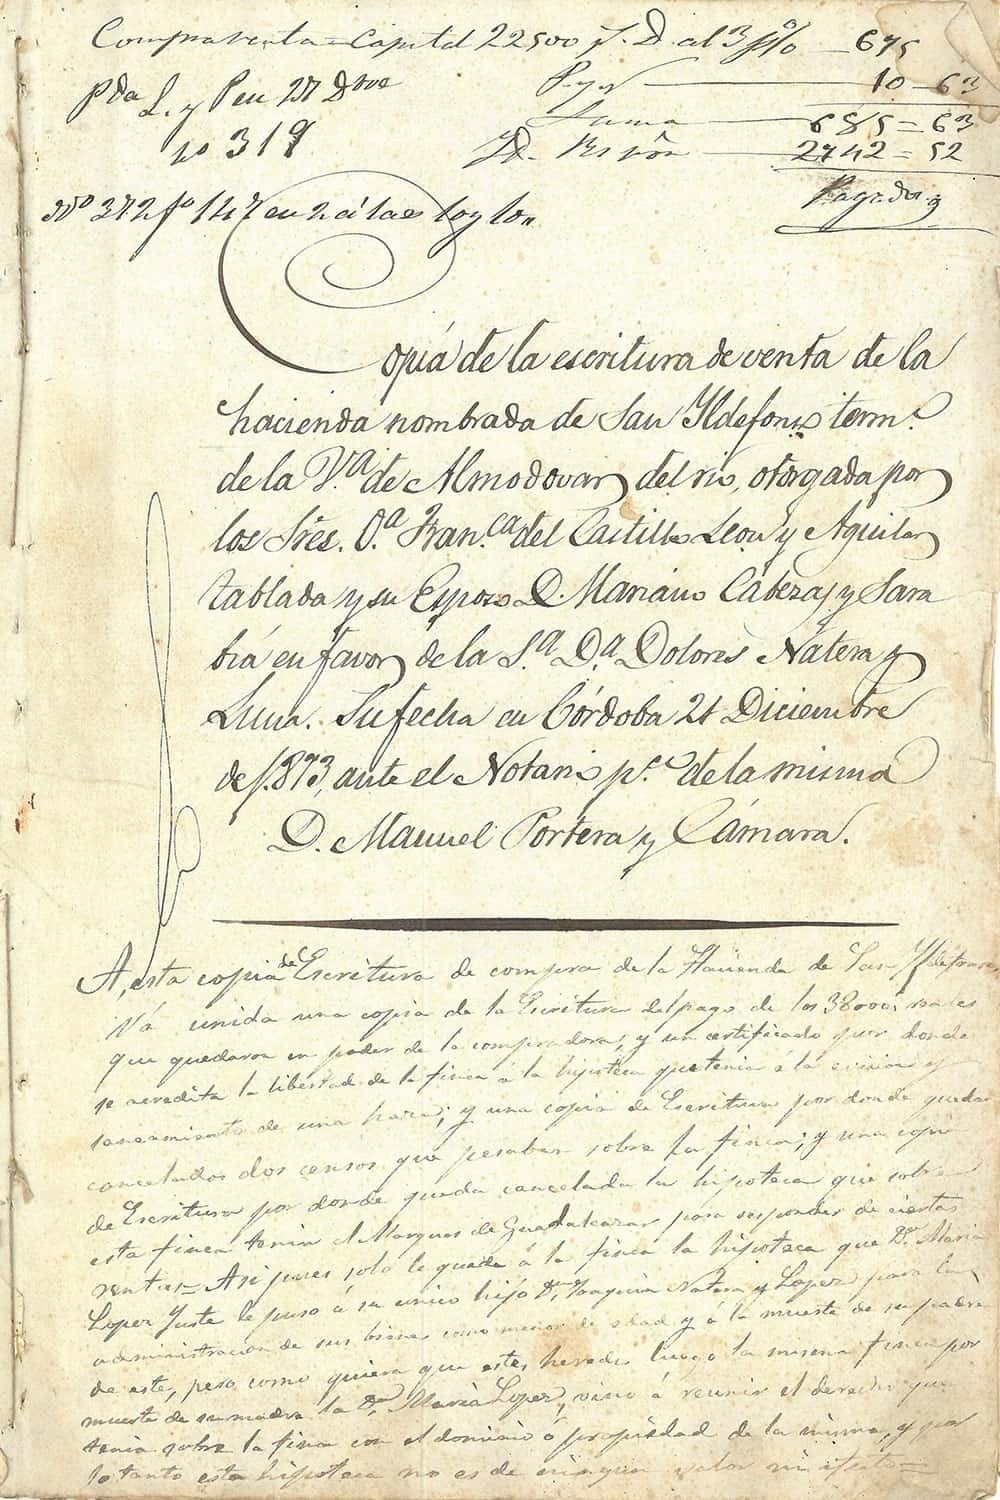 Compraventa = Capital 22500 p. D. al 3 p% — 675
Pda L. y P en 27 Dbre
10 = 63
no 319
Suma — 685 = 63
2742 = 52
Nº 372 fº 147 en
Pagado
Copia de la escritura de venta de la
hacienda nombrada de San Yldefonso term.º
de la V.ª de Almodovar del rio, otorgada por
los Sres. D.ª Fran.ca del Castillo Leon y Aguilar
tablada y su Esposo D. Mariano Cabezas y Sara
bia en favor de la S.ª D.ª Dolores Natera y
Luna. Su fecha en Córdoba 21 Diciembre
de 1.873, ante el Notario p.co de la misma
D. Manuel Portera y Cámara.
A, esta copia de Escritura de compra de la Hacienda de San Yldefonso
Vá unida una copia de la Escritura del pago de los 38000 reales
que quedaron en poder de la compradora, y un certificado por donde
se acredita la libertad de la finca á la hipoteca que tenia á la eviccion y
saneamiento de una haza; y una copia de Escritura por donde quedan
cancelados dos censos que pesaban sobre la finca; y una copia
de Escritura por donde queda cancelada la hipoteca que sobre
esta finca tenia el Marques de Guadalcazar para responder de ciertas
ventas = Asi pues solo le queda á la finca la hipoteca que Dª Maria
Lopez Yuste le puso á su unico hijo Dn Joaquin Natera y Lopez para la
administracion de sus bienes como menor de edad y á la muerte de su padre
de este, pero como quiera que este heredó luego la misma finca por
muerte de su madre la Dª Maria Lopez, vino á reunir el derecho que
tenia sobre la finca con el dominio ó propiedad de la misma, y por
lo tanto esta hipoteca no es de ningun valor ni efecto =